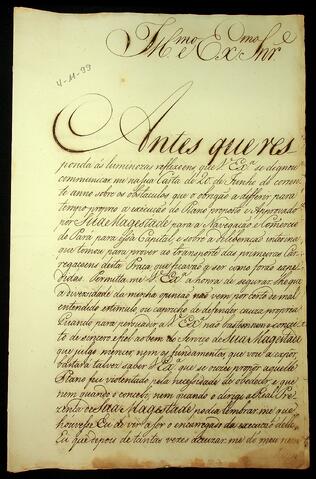 Ill.mo e Ex.mo Snr.
4-11-99
Antes que res
ponda ás luminozas reflexoens que V. Ex.ª se dignou
communicar me na sua Carta de 20 de Junho do corren
te anno sobre os obstaculos que o obrigão a differir para
tempo proprio a execução do Plano proposto e Approvado
por Sua Magestade para a Navegação e Comercio
do Pará para essa Capital; e sobre a deliberação interina
que tomou para prover ao transporte das primeiras Car
regaçoens desta Praça que ficarão q̃ ser como forão expe
didas. Permitta me V. Ex.ª a honra de segurar lhe que
a diversidade da minha opinião não vem por certo de mal
entendido estimulo ou capricho de defender cauza propria:
Quando para persuadir a V. Ex.ª não bastem o concei
to de sincero afecto ao bem do Serviço de Sua Magestade
que julgo merecer nem os fundamentos que vou a expor,
bastará talvez saber V. Ex.ª que se ouzei propor aquelle
Plano fui violentado pela necessidade de obedecer e que
nem quando o concebi, nem quando o dirigi á Real Pre
zença de Sua Magestade podia lembrar me que
houvesse Eu de vir a ser o encarregado da execução delle.
Eu que depois de tantas vezes me de meu